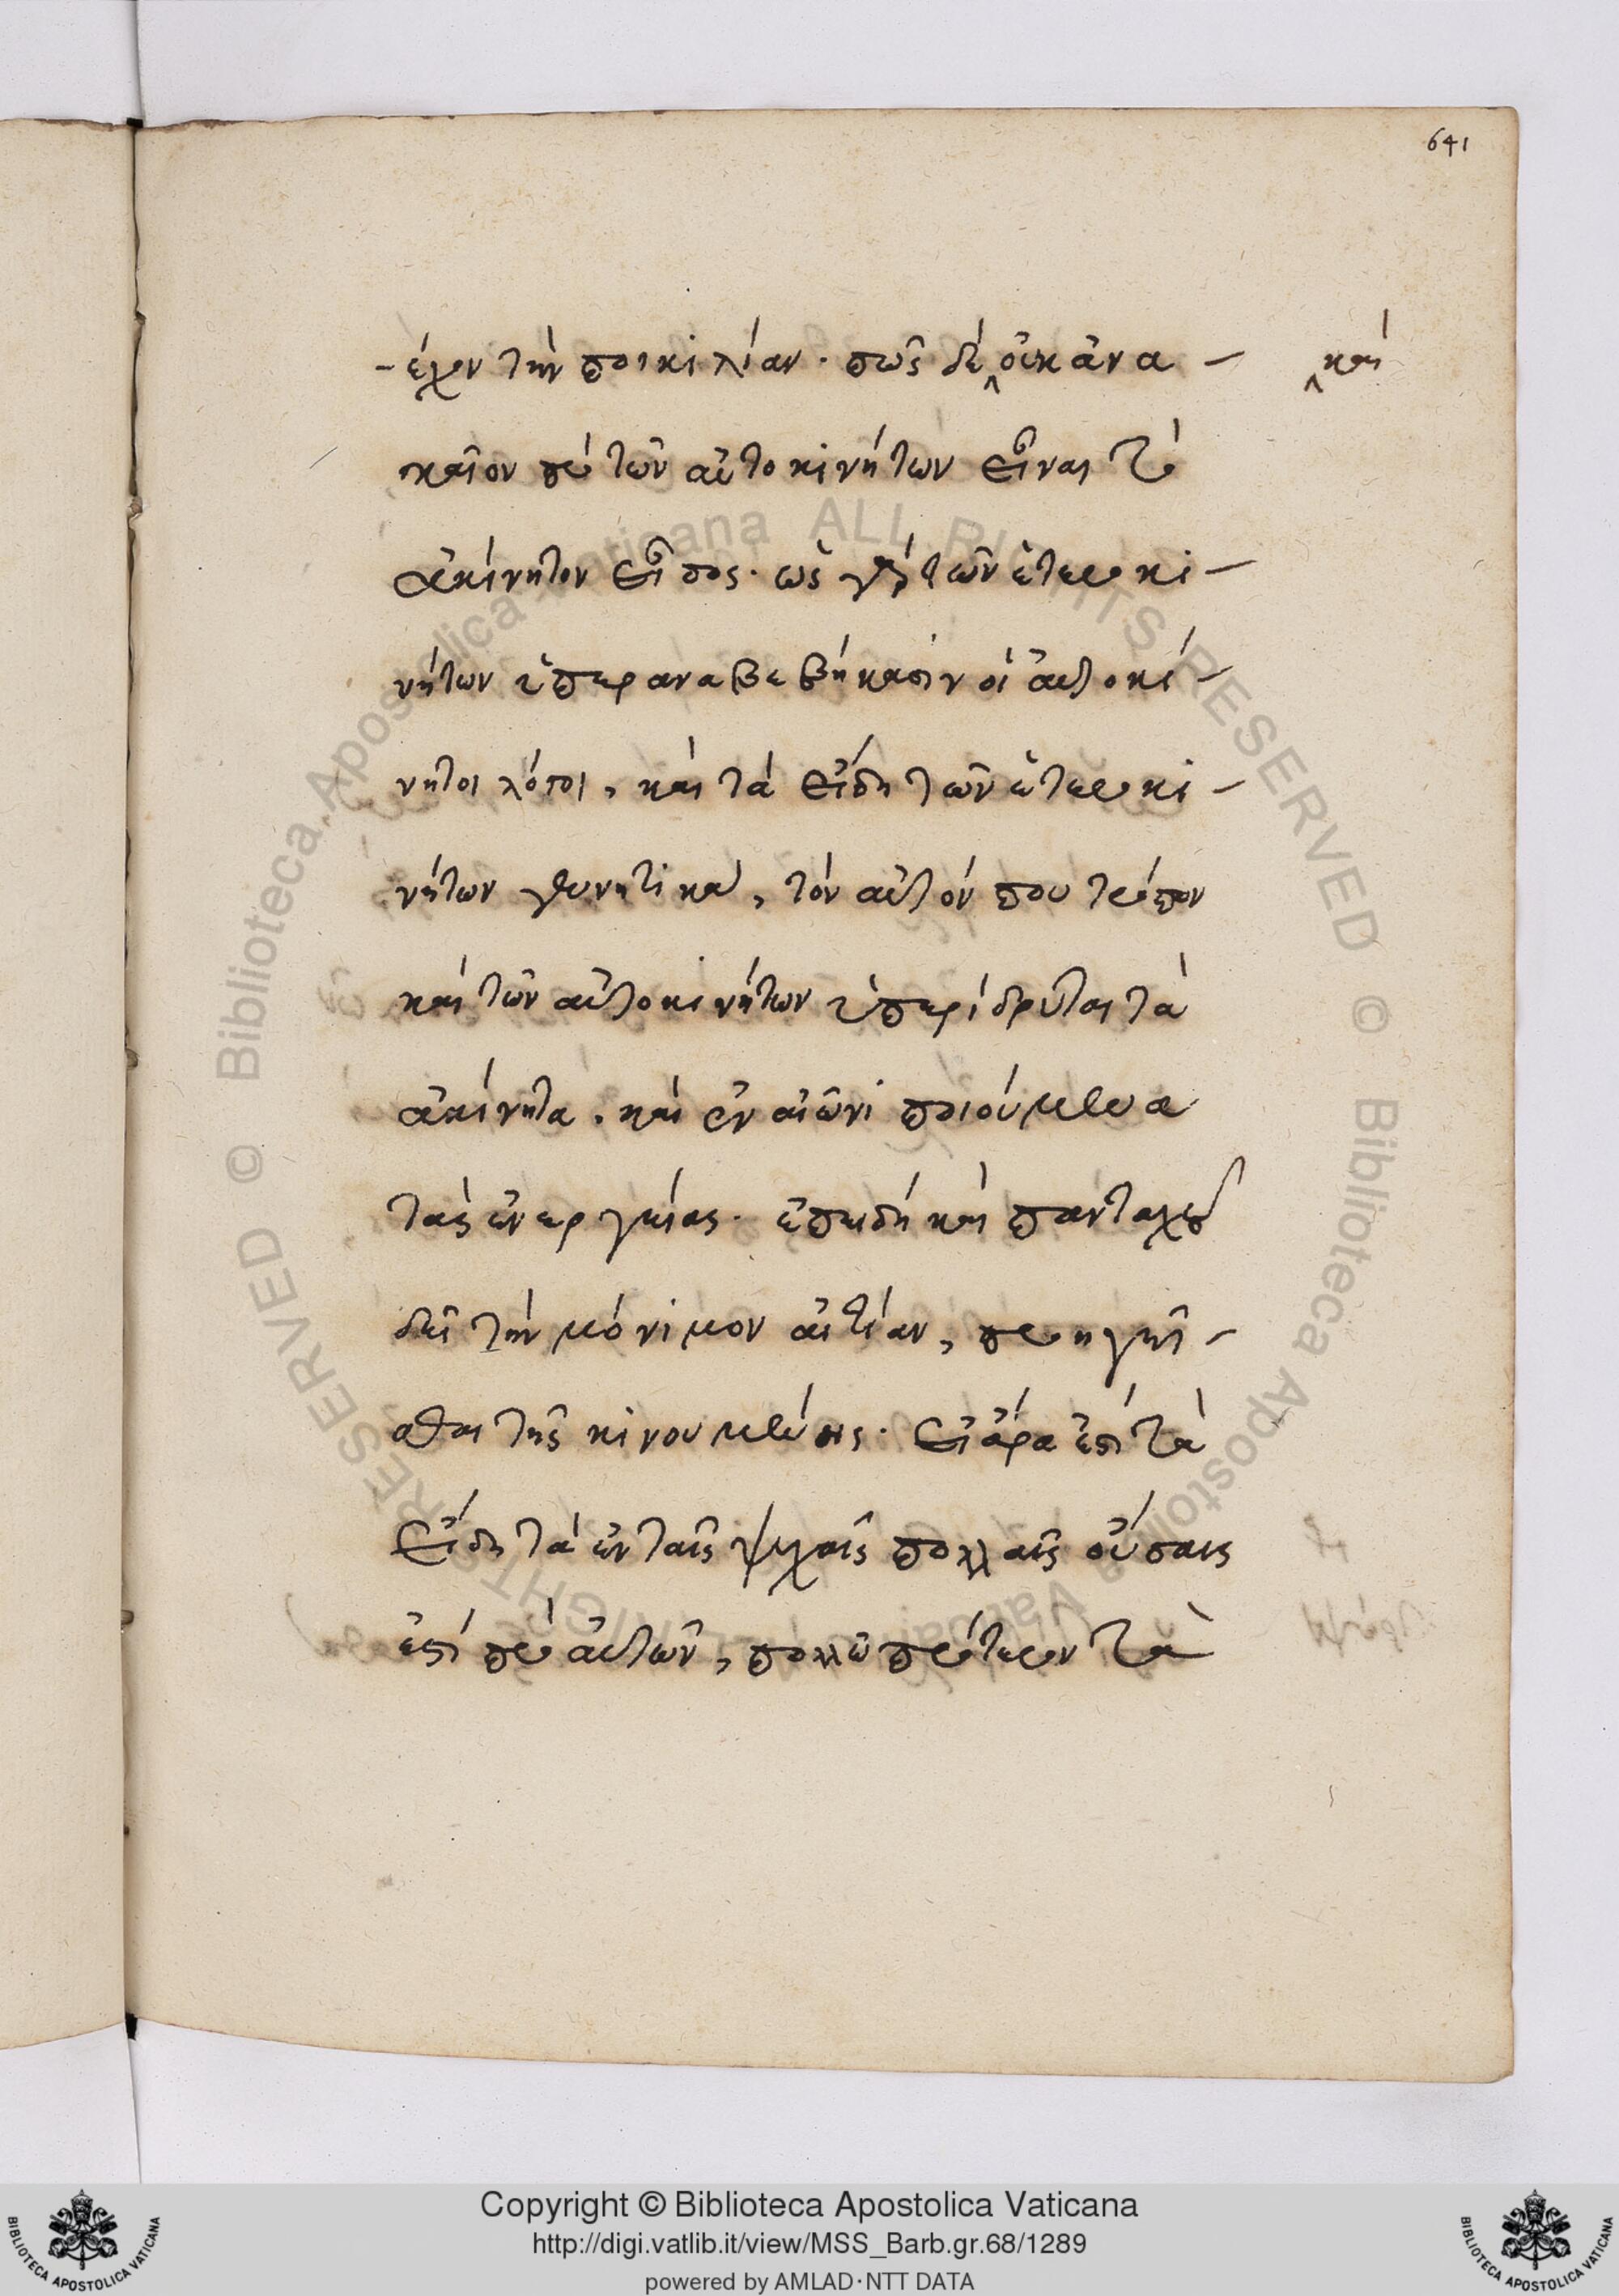 641
-έχον τὴν ποικιλίαν· πῶς δὲ ‸ οὐκ ἀνα- ‸ καὶ
καῖον πρὸ τῶν αὐτοκινήτων εἶναι τὸ
ἀκίνητον εἶδος· ὡς γὰρ τῶν ἑτεροκι-
νήτων ὑπεραναβεβήκασιν οἱ αὐτοκί-
νητοι λόγοι, καὶ τὰ εἴδη τῶν ἑτεροκι-
νήτων γεννητικὰ, τὸν αὐτόν που τρόπον
καὶ τῶν αὐτοκινήτων ὑπερίδρυται τὰ
ἀκίνητα, καὶ ἐν αἰῶνι ποιούμενα
τὰς ἐνεργείας· ἐπειδὴ καὶ πανταχοῦ
δεῖ τὴν μόνιμον αἰτίαν, προηγεῖ-
σθαι τῆς κινουμένης· εἰ ἄρα ἐστὶ τὰ
εἴδη τὰ ἐν ταῖς ψυχαῖς πολλαῖς οὔσαις
ἐστὶ πρὸ αὐτῶν, πολλῷ πρότερον τὰ
Copyright © Biblioteca Apostolica Vaticana
http://digi.vatlib.it/view/MSS_Barb.gr.68/1289
powered by AMLAD·NTT DATA